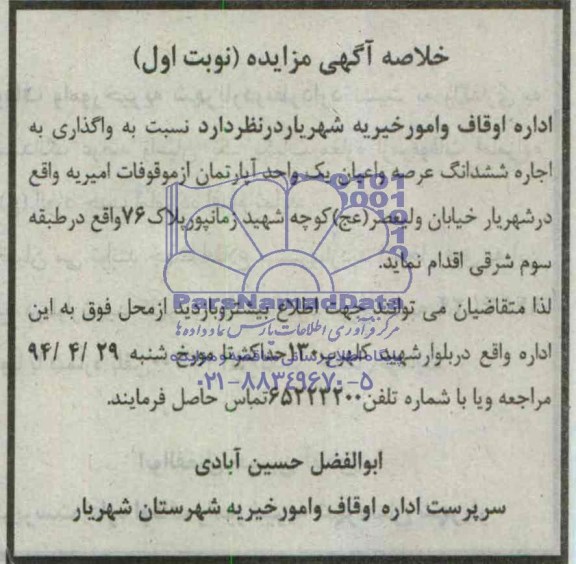 خلاصه آگهی مزایده (نوبت اول)
اداره اوقاف وامورخیریه شهریاردرنظردارد نسبت به واگذاری به
اجاره ششدانگ عرصه واعیان یک واحد آپارتمان ازموقوفات امیریه واقع
درشهریار خیابان ولیعصر(عج)کوچه شهید زمانپورپلاک۷۶واقع درطبقه
سوم شرقی اقدام نماید.
ParsNamadData
لذا متقاضیان می توانند جهت اطلاع بیشتروبازدید ازمحل فوق به این
مرکز فرآوری اطلاعات پارس نماد داده ها
اداره واقع دربلوارشهید کلهر حداکثرتا مورخ شنبه ۲۹ /۴ /۹۴
۰۲۱-۸۸۳۴۹۶۷۰-۵
مراجعه ویا با شماره تلفن۶۵۲۲۲۲۰۰تماس حاصل فرمایند.
ابوالفضل حسین آبادی
سرپرست اداره اوقاف وامورخیریه شهرستان شهریار